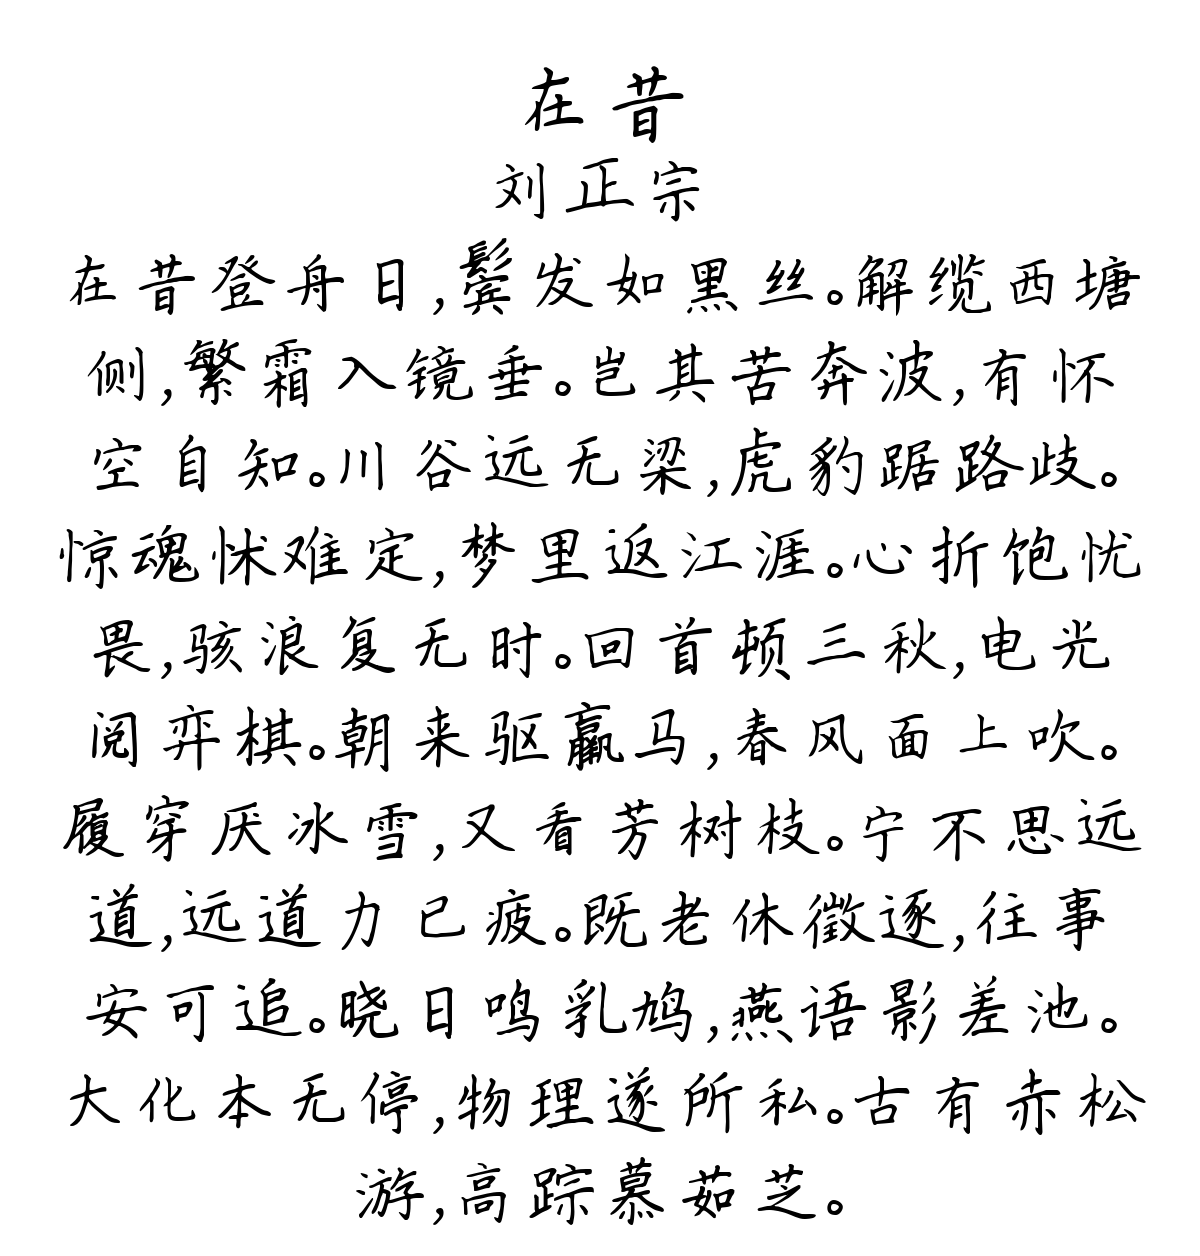 在昔
刘正宗
在昔登舟日,鬓发如黑丝。解缆西塘
侧,繁霜入镜垂。岂其苦奔波,有怀
空自知。川谷远无梁,虎豹踞路歧。
惊魂怵难定,梦里返江涯。心折饱忧
畏,骇浪复无时。回首顿三秋,电光
阅弈棋。朝来驱羸马,春风面上吹。
履穿厌冰雪,又看芳树枝。宁不思远
道,远道力已疲。既老休徵逐,往事
安可追。晓日鸣乳鸠,燕语影差池。
大化本无停,物理遂所私。古有赤松
游,高踪慕茹芝。